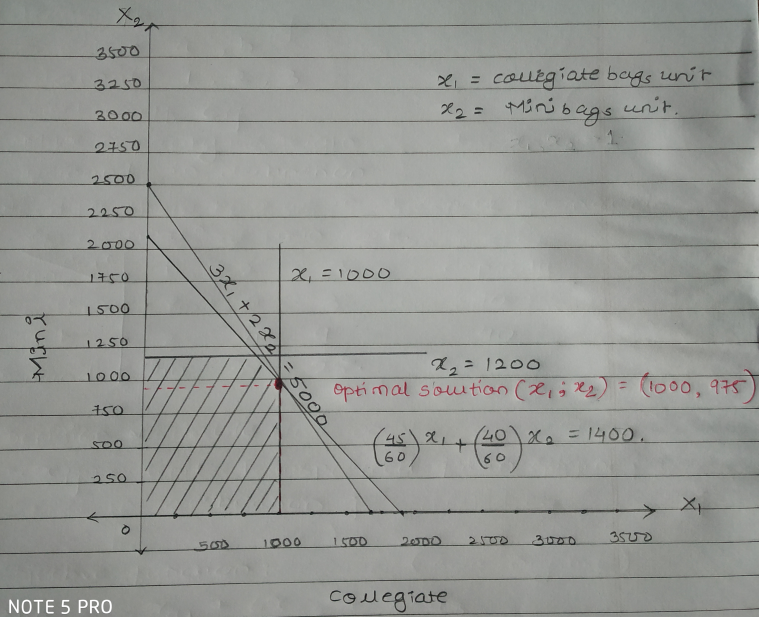 X₂
3500
3250
3000
2750
2500
2250
2000
1750
1500
1250
1000
750
500
250
0
x₁ = collegiate bags unit
x₂ = Mini bags unit.
3x₁ + 2x₂ = 5000
x₁ = 1000
x₂ = 1200
optimal solution (x₁; x₂) = (1000, 975)
(45/60) x₁ + (40/60) x₂ = 1400.
Mini
X₁
500 1000 1500 2000 2500 3000 3500
Collegiate
NOTE 5 PRO